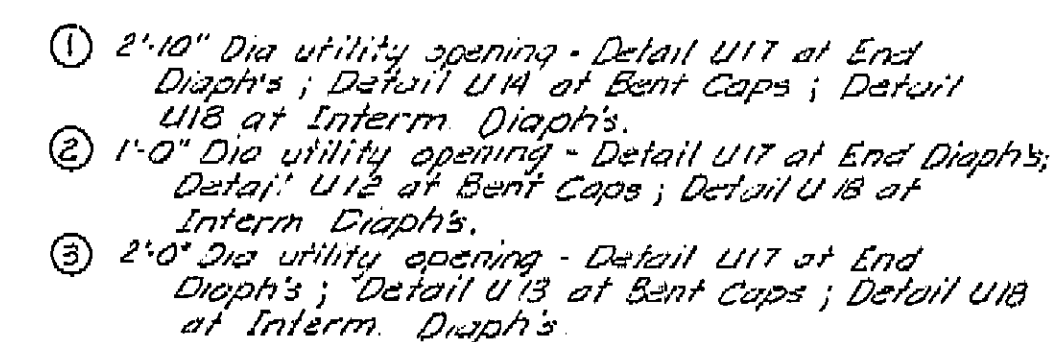 ① 2'-10" Dia utility opening - Detail U17 at End
Diaph's ; Detail U14 at Bent Caps ; Detail
U18 at Interm. Diaph's.
② 1'-0" Dia utility opening - Detail U17 at End Diaph's;
Detail U12 at Bent Caps ; Detail U18 at
Interm Diaph's.
③ 2'-0" Dia utility opening - Detail U17 at End
Diaph's ; Detail U13 at Bent Caps ; Detail U18
at Interm. Diaph's.